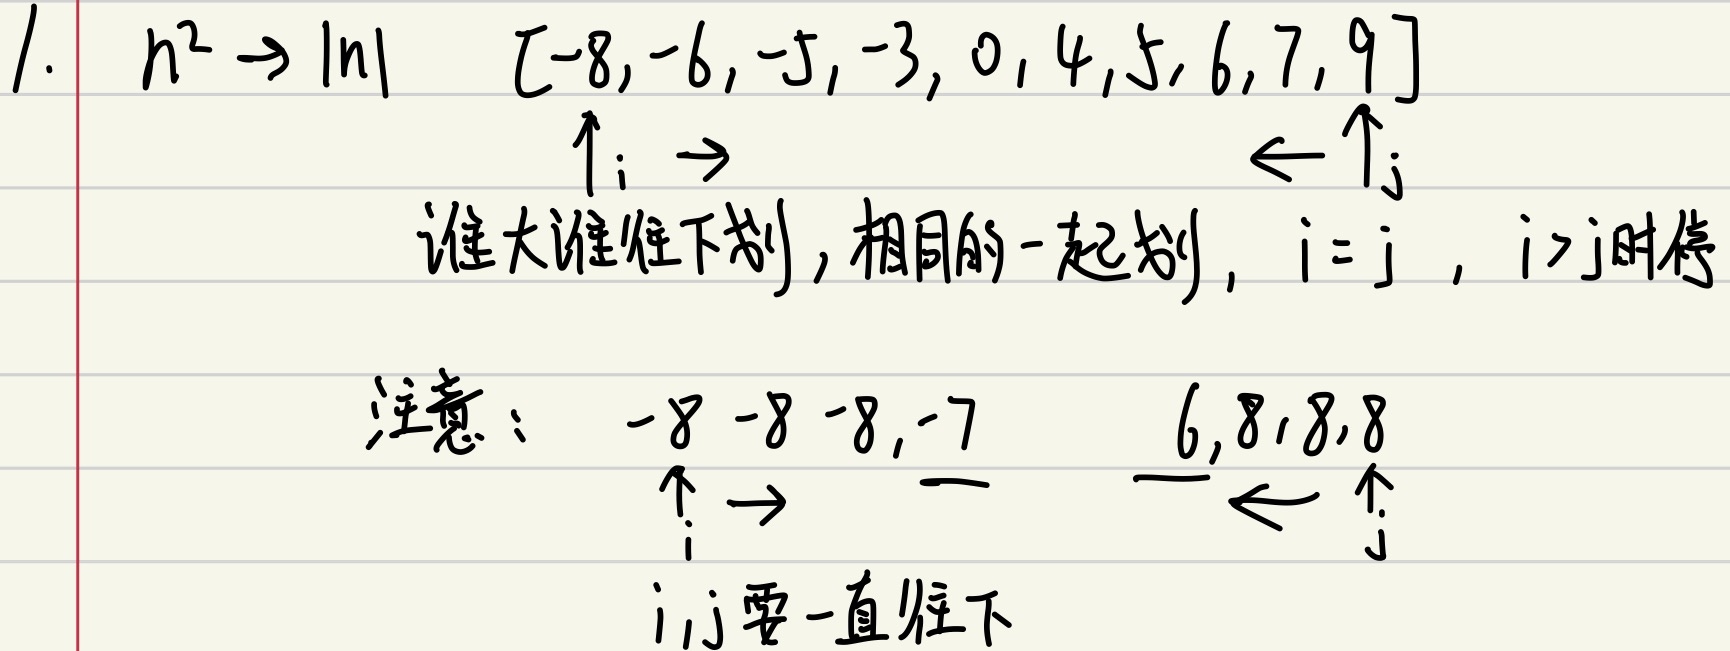 1. n² → |n| [-8, -6, -5, -3, 0, 4, 5, 6, 7, 9]
↑i → ← ↑j
谁大谁往下划, 相同的一起划, i = j , i > j时停
注意: -8 -8 -8, -7 6, 8, 8, 8
↑i → ← ↑j
i, j要一直往下